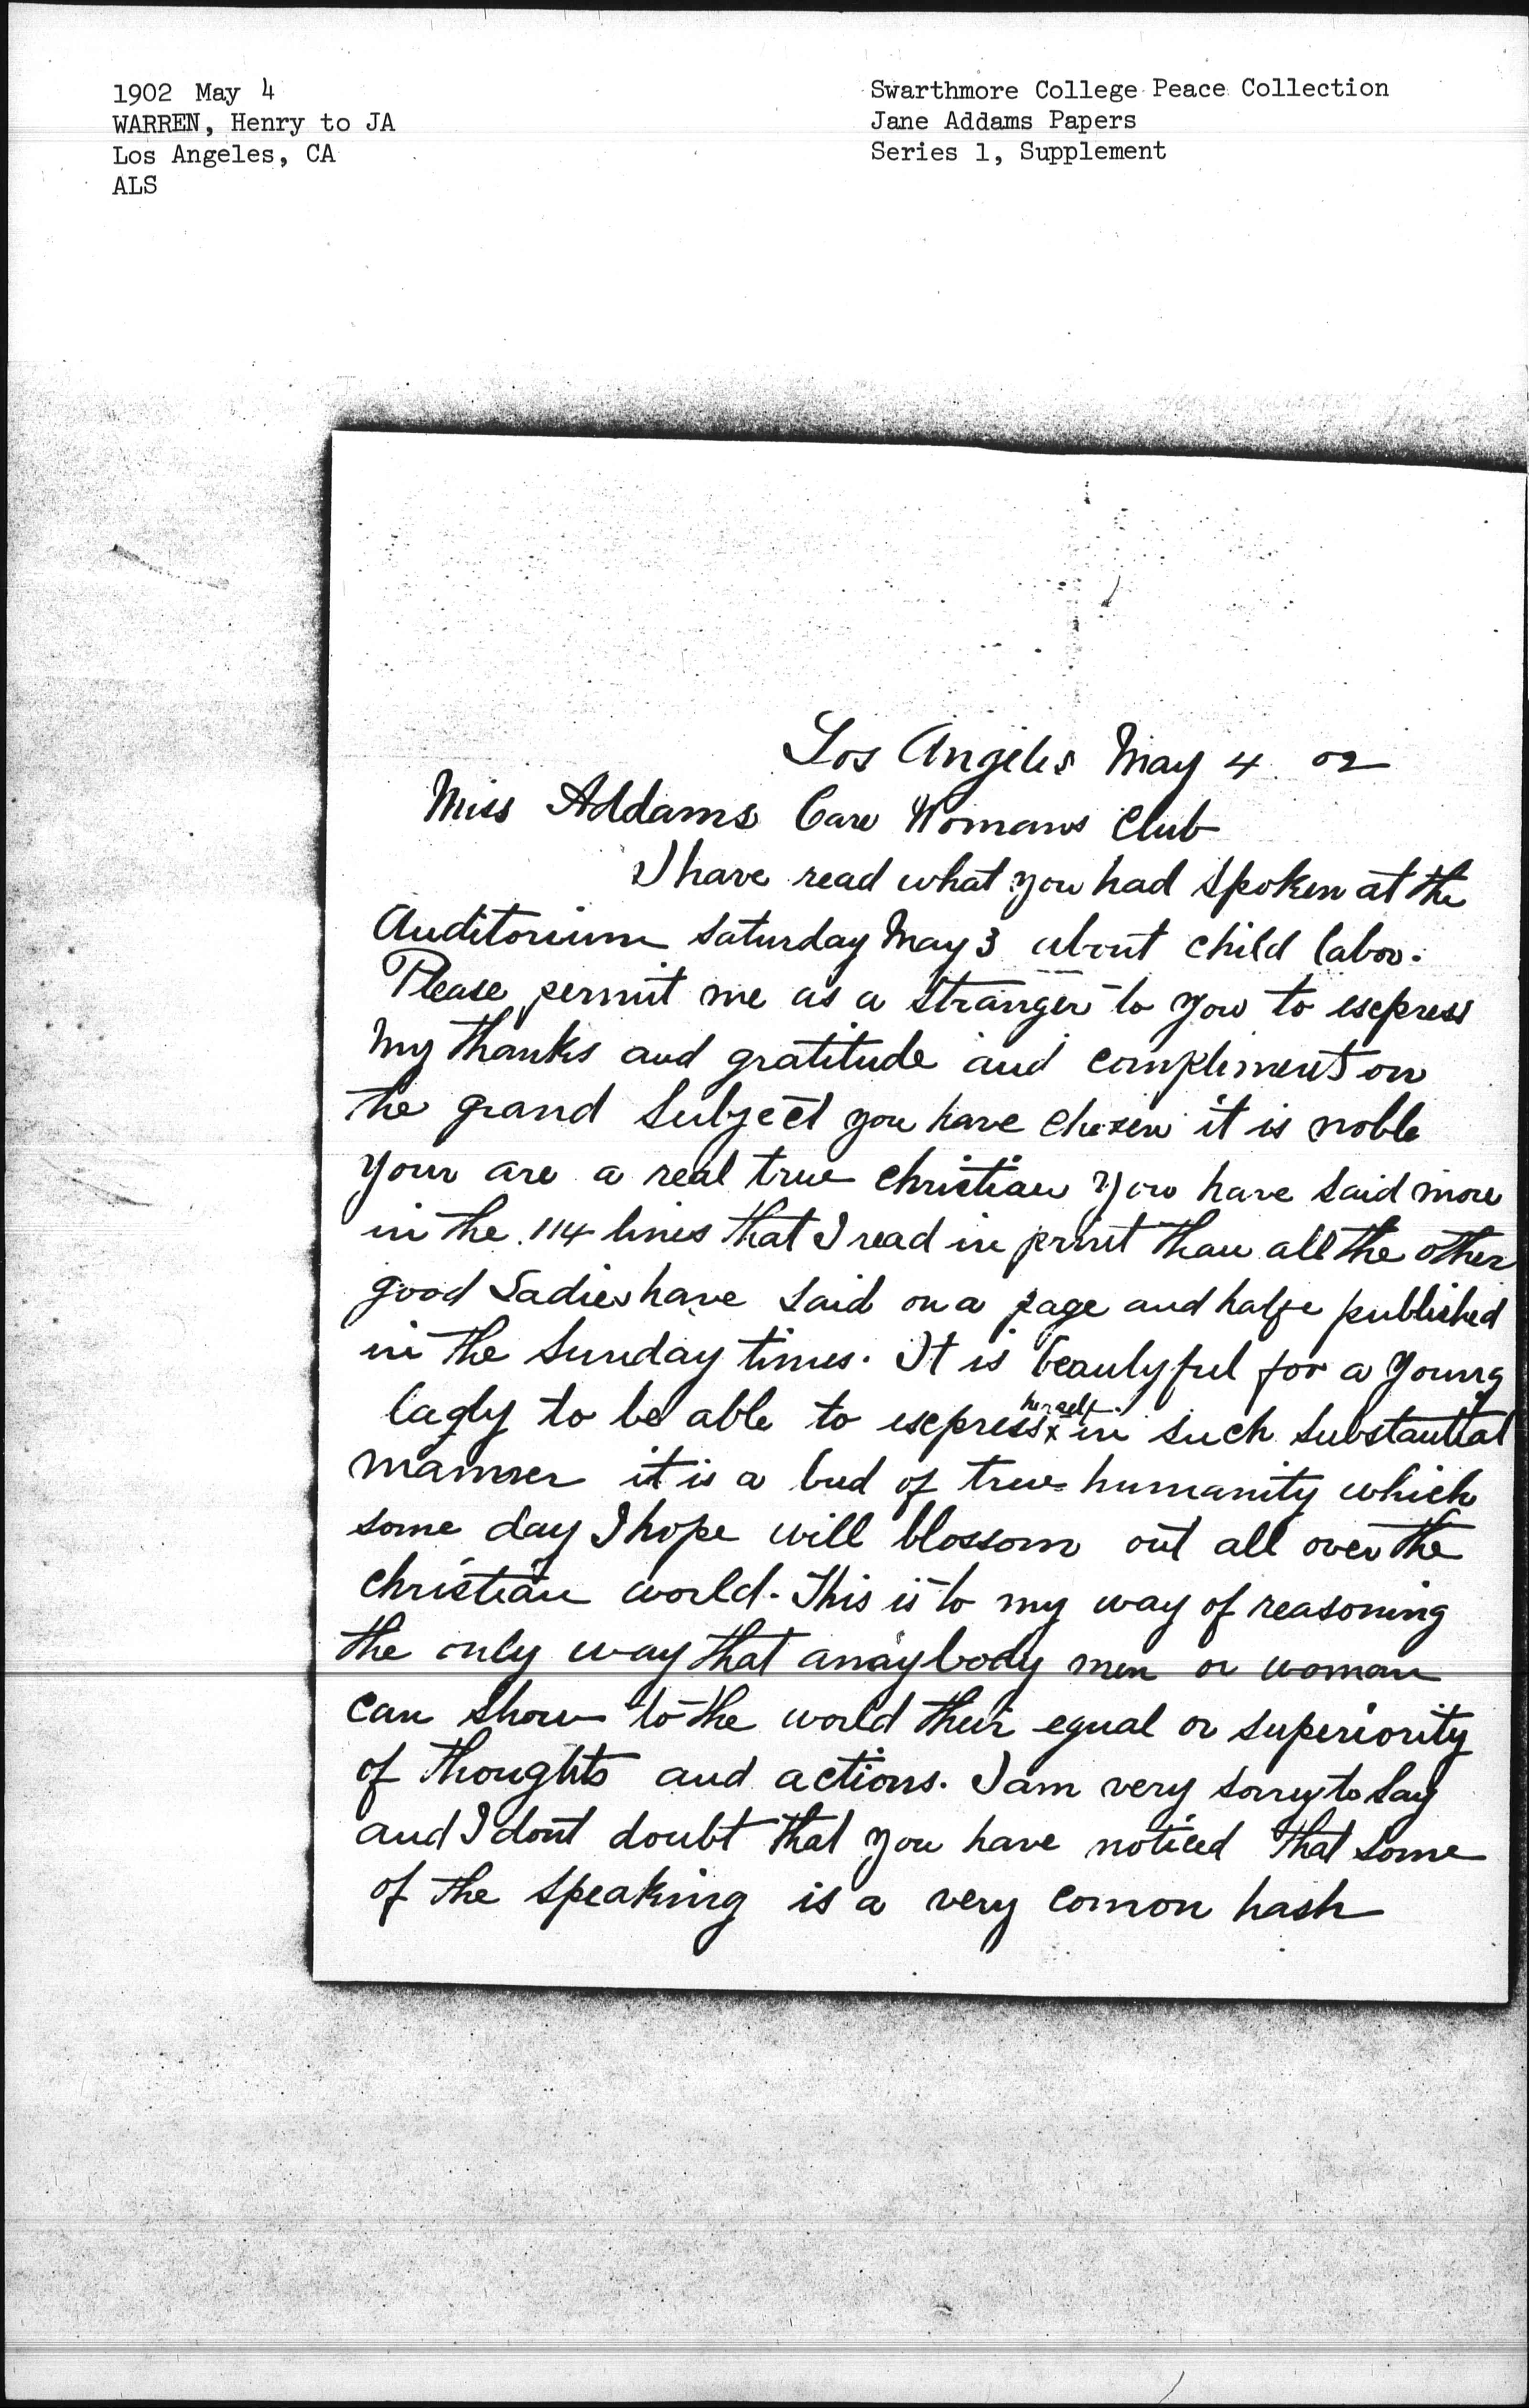 1902 May 4
WARREN, Henry to JA
Los Angeles, CA
ALS
Swarthmore College Peace Collection
Jane Addams Papers
Series 1, Supplement
Los Angeles May 4 02
Miss Addams Care Womans Club
I have read what you had spoken at the
Auditorium Saturday May 3 about child labor.
Please permit me as a stranger to you to express
my thanks and gratitude and compliment on
the grand subject you have chosen it is noble
your are a real true christian you have said more
in the 114 lines that I read in print than all the other
good Ladies have said on a page and halfe published
in the Sunday times. It is beautyful for a young
lady to be able to express herself in such substantial
manner it is a bud of true humanity which
some day I hope will blossom out all over the
christian world. This is to my way of reasoning
the only way that anaybody men or woman
can show to the world their equal or superiority
of thoughts and actions. I am very sorry to say
and I dont doubt that you have noticed that some
of the speaking is a very comon hash